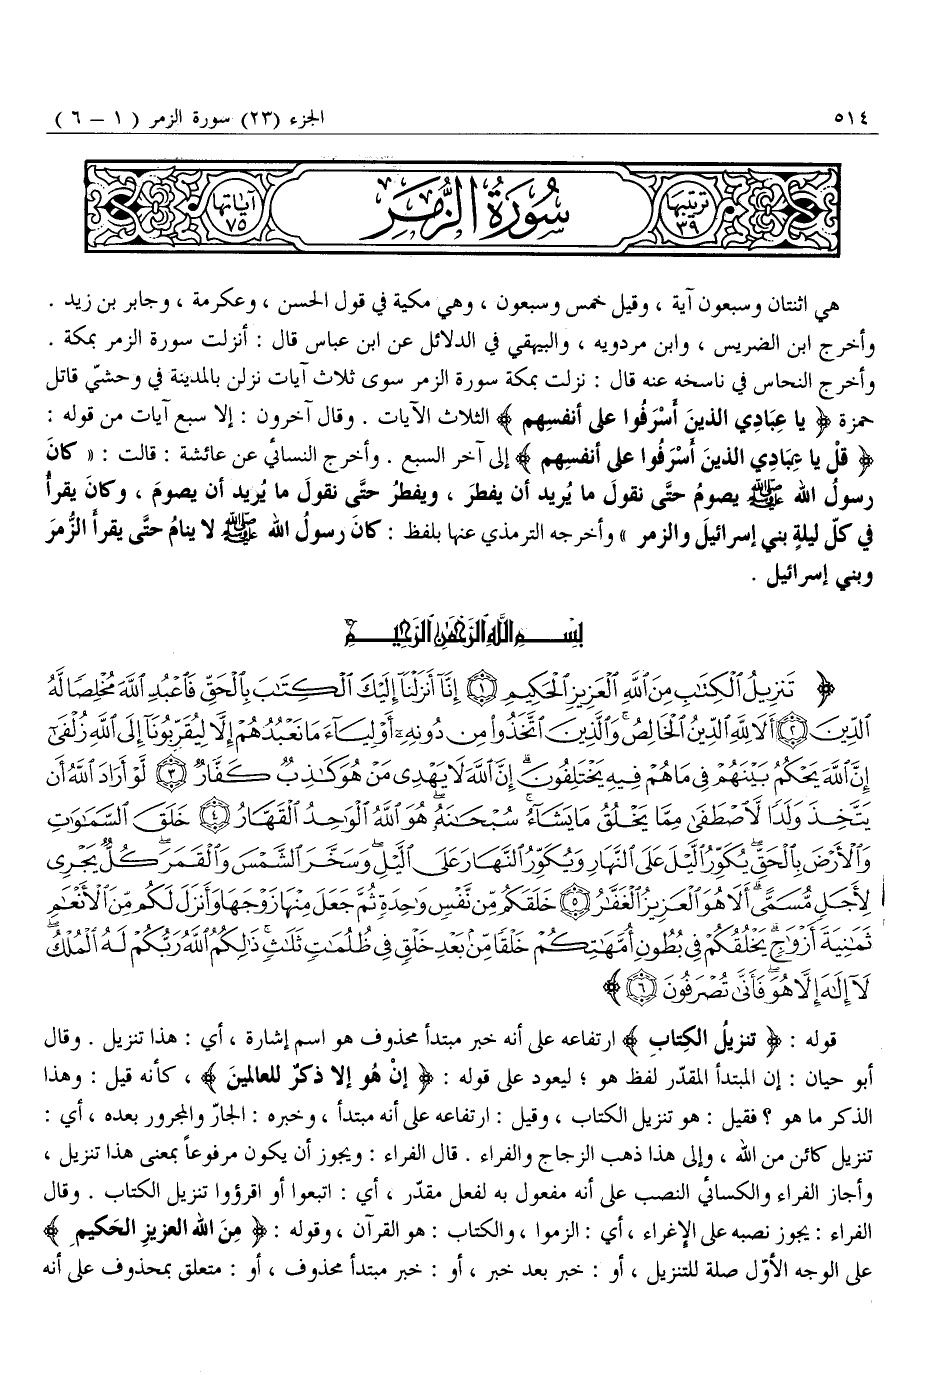 ٥١٤ الجزء (٢٣) سورة الزمر ( ١ – ٦ )
ترتيبها ٣٩ سُورَةُ الزُّمَرِ آياتها ٧٥
هي اثنتان وسبعون آية ، وقيل خمس وسبعون ، وهي مكية في قول الحسن ، وعكرمة ، وجابر بن زيد .
وأخرج ابن الضريس ، وابن مردويه ، والبيهقي في الدلائل عن ابن عباس قال : أنزلت سورة الزمر بمكة .
وأخرج النحاس في ناسخه عنه قال : نزلت بمكة سورة الزمر سوى ثلاث آيات نزلن بالمدينة في وحشيّ قاتل
حمزة ﴿ يا عِبَادِي الذينَ أَسْرَفُوا على أنفسِهِم ﴾ الثلاث الآيات . وقال آخرون : إلا سبع آيات من قوله :
﴿ قلْ يا عِبَادِي الذينَ أَسْرَفُوا على أنفسِهِم ﴾ إلى آخر السبع . وأخرج النسائي عن عائشة : قالت : « كانَ
رسولُ الله ﷺ يصومُ حتَّى نقولَ ما يُريد أن يفطرَ ، ويفطرُ حتَّى نقولَ ما يُريد أن يصومَ ، وكانَ يقرأُ
في كلّ ليلةٍ بني إسرائيلَ والزمر » وأخرجه الترمذي عنها بلفظ : كانَ رسولُ الله ﷺ لا ينامُ حتَّى يقرأَ الزُّمرَ
وبني إسرائيل .
بِسْمِ اللَّهِ الرَّحْمَٰنِ الرَّحِيمِ
﴿ تَنزِيلُ ٱلْكِتَٰبِ مِنَ ٱللَّهِ ٱلْعَزِيزِ ٱلْحَكِيمِ ۝١ إِنَّآ أَنزَلْنَآ إِلَيْكَ ٱلْكِتَٰبَ بِٱلْحَقِّ فَٱعْبُدِ ٱللَّهَ مُخْلِصًا لَّهُ
ٱلدِّينَ ۝٢ أَلَا لِلَّهِ ٱلدِّينُ ٱلْخَالِصُ ۚ وَٱلَّذِينَ ٱتَّخَذُوا۟ مِن دُونِهِۦٓ أَوْلِيَآءَ مَا نَعْبُدُهُمْ إِلَّا لِيُقَرِّبُونَآ إِلَى ٱللَّهِ زُلْفَىٰٓ
إِنَّ ٱللَّهَ يَحْكُمُ بَيْنَهُمْ فِى مَا هُمْ فِيهِ يَخْتَلِفُونَ ۗ إِنَّ ٱللَّهَ لَا يَهْدِى مَنْ هُوَ كَٰذِبٌ كَفَّارٌ ۝٣ لَّوْ أَرَادَ ٱللَّهُ أَن
يَتَّخِذَ وَلَدًا لَّٱصْطَفَىٰ مِمَّا يَخْلُقُ مَا يَشَآءُ ۚ سُبْحَٰنَهُۥ ۖ هُوَ ٱللَّهُ ٱلْوَٰحِدُ ٱلْقَهَّارُ ۝٤ خَلَقَ ٱلسَّمَٰوَٰتِ
وَٱلْأَرْضَ بِٱلْحَقِّ ۖ يُكَوِّرُ ٱلَّيْلَ عَلَى ٱلنَّهَارِ وَيُكَوِّرُ ٱلنَّهَارَ عَلَى ٱلَّيْلِ ۖ وَسَخَّرَ ٱلشَّمْسَ وَٱلْقَمَرَ ۖ كُلٌّ يَجْرِى
لِأَجَلٍ مُّسَمًّى ۗ أَلَا هُوَ ٱلْعَزِيزُ ٱلْغَفَّٰرُ ۝٥ خَلَقَكُم مِّن نَّفْسٍ وَٰحِدَةٍ ثُمَّ جَعَلَ مِنْهَا زَوْجَهَا وَأَنزَلَ لَكُم مِّنَ ٱلْأَنْعَٰمِ
ثَمَٰنِيَةَ أَزْوَٰجٍ ۚ يَخْلُقُكُمْ فِى بُطُونِ أُمَّهَٰتِكُمْ خَلْقًا مِّنۢ بَعْدِ خَلْقٍ فِى ظُلُمَٰتٍ ثَلَٰثٍ ۚ ذَٰلِكُمُ ٱللَّهُ رَبُّكُمْ لَهُ ٱلْمُلْكُ ۖ
لَآ إِلَٰهَ إِلَّا هُوَ ۖ فَأَنَّىٰ تُصْرَفُونَ ۝٦ ﴾
قوله : ﴿ تنزيلُ الكِتابِ ﴾ ارتفاعه على أنه خبر مبتدأ محذوف هو اسم إشارة ، أي : هذا تنزيل . وقال
أبو حيان : إن المبتدأ المقدّر لفظ هو ؛ ليعود على قوله : ﴿ إنْ هُو إلا ذكرٌ للعالمينَ ﴾ ، كأنه قيل : وهذا
الذكر ما هو ؟ فقيل : هو تنزيل الكتاب ، وقيل : ارتفاعه على أنه مبتدأ ، وخبره : الجارّ والمجرور بعده ، أي :
تنزيل كائن من الله ، وإلى هذا ذهب الزجاج والفراء . قال الفراء : ويجوز أن يكون مرفوعاً بمعنى هذا تنزيل ،
وأجاز الفراء والكسائي النصب على أنه مفعول به لفعل مقدّر ، أي : اتبعوا أو اقرؤوا تنزيل الكتاب . وقال
الفراء : يجوز نصبه على الإغراء ، أي : الزموا ، والكتاب : هو القرآن ، وقوله : ﴿ مِنَ الله العزيزِ الحَكيمِ ﴾
على الوجه الأوّل صلة للتنزيل ، أو : خبر بعد خبر ، أو : خبر مبتدأ محذوف ، أو : متعلق بمحذوف على أنه